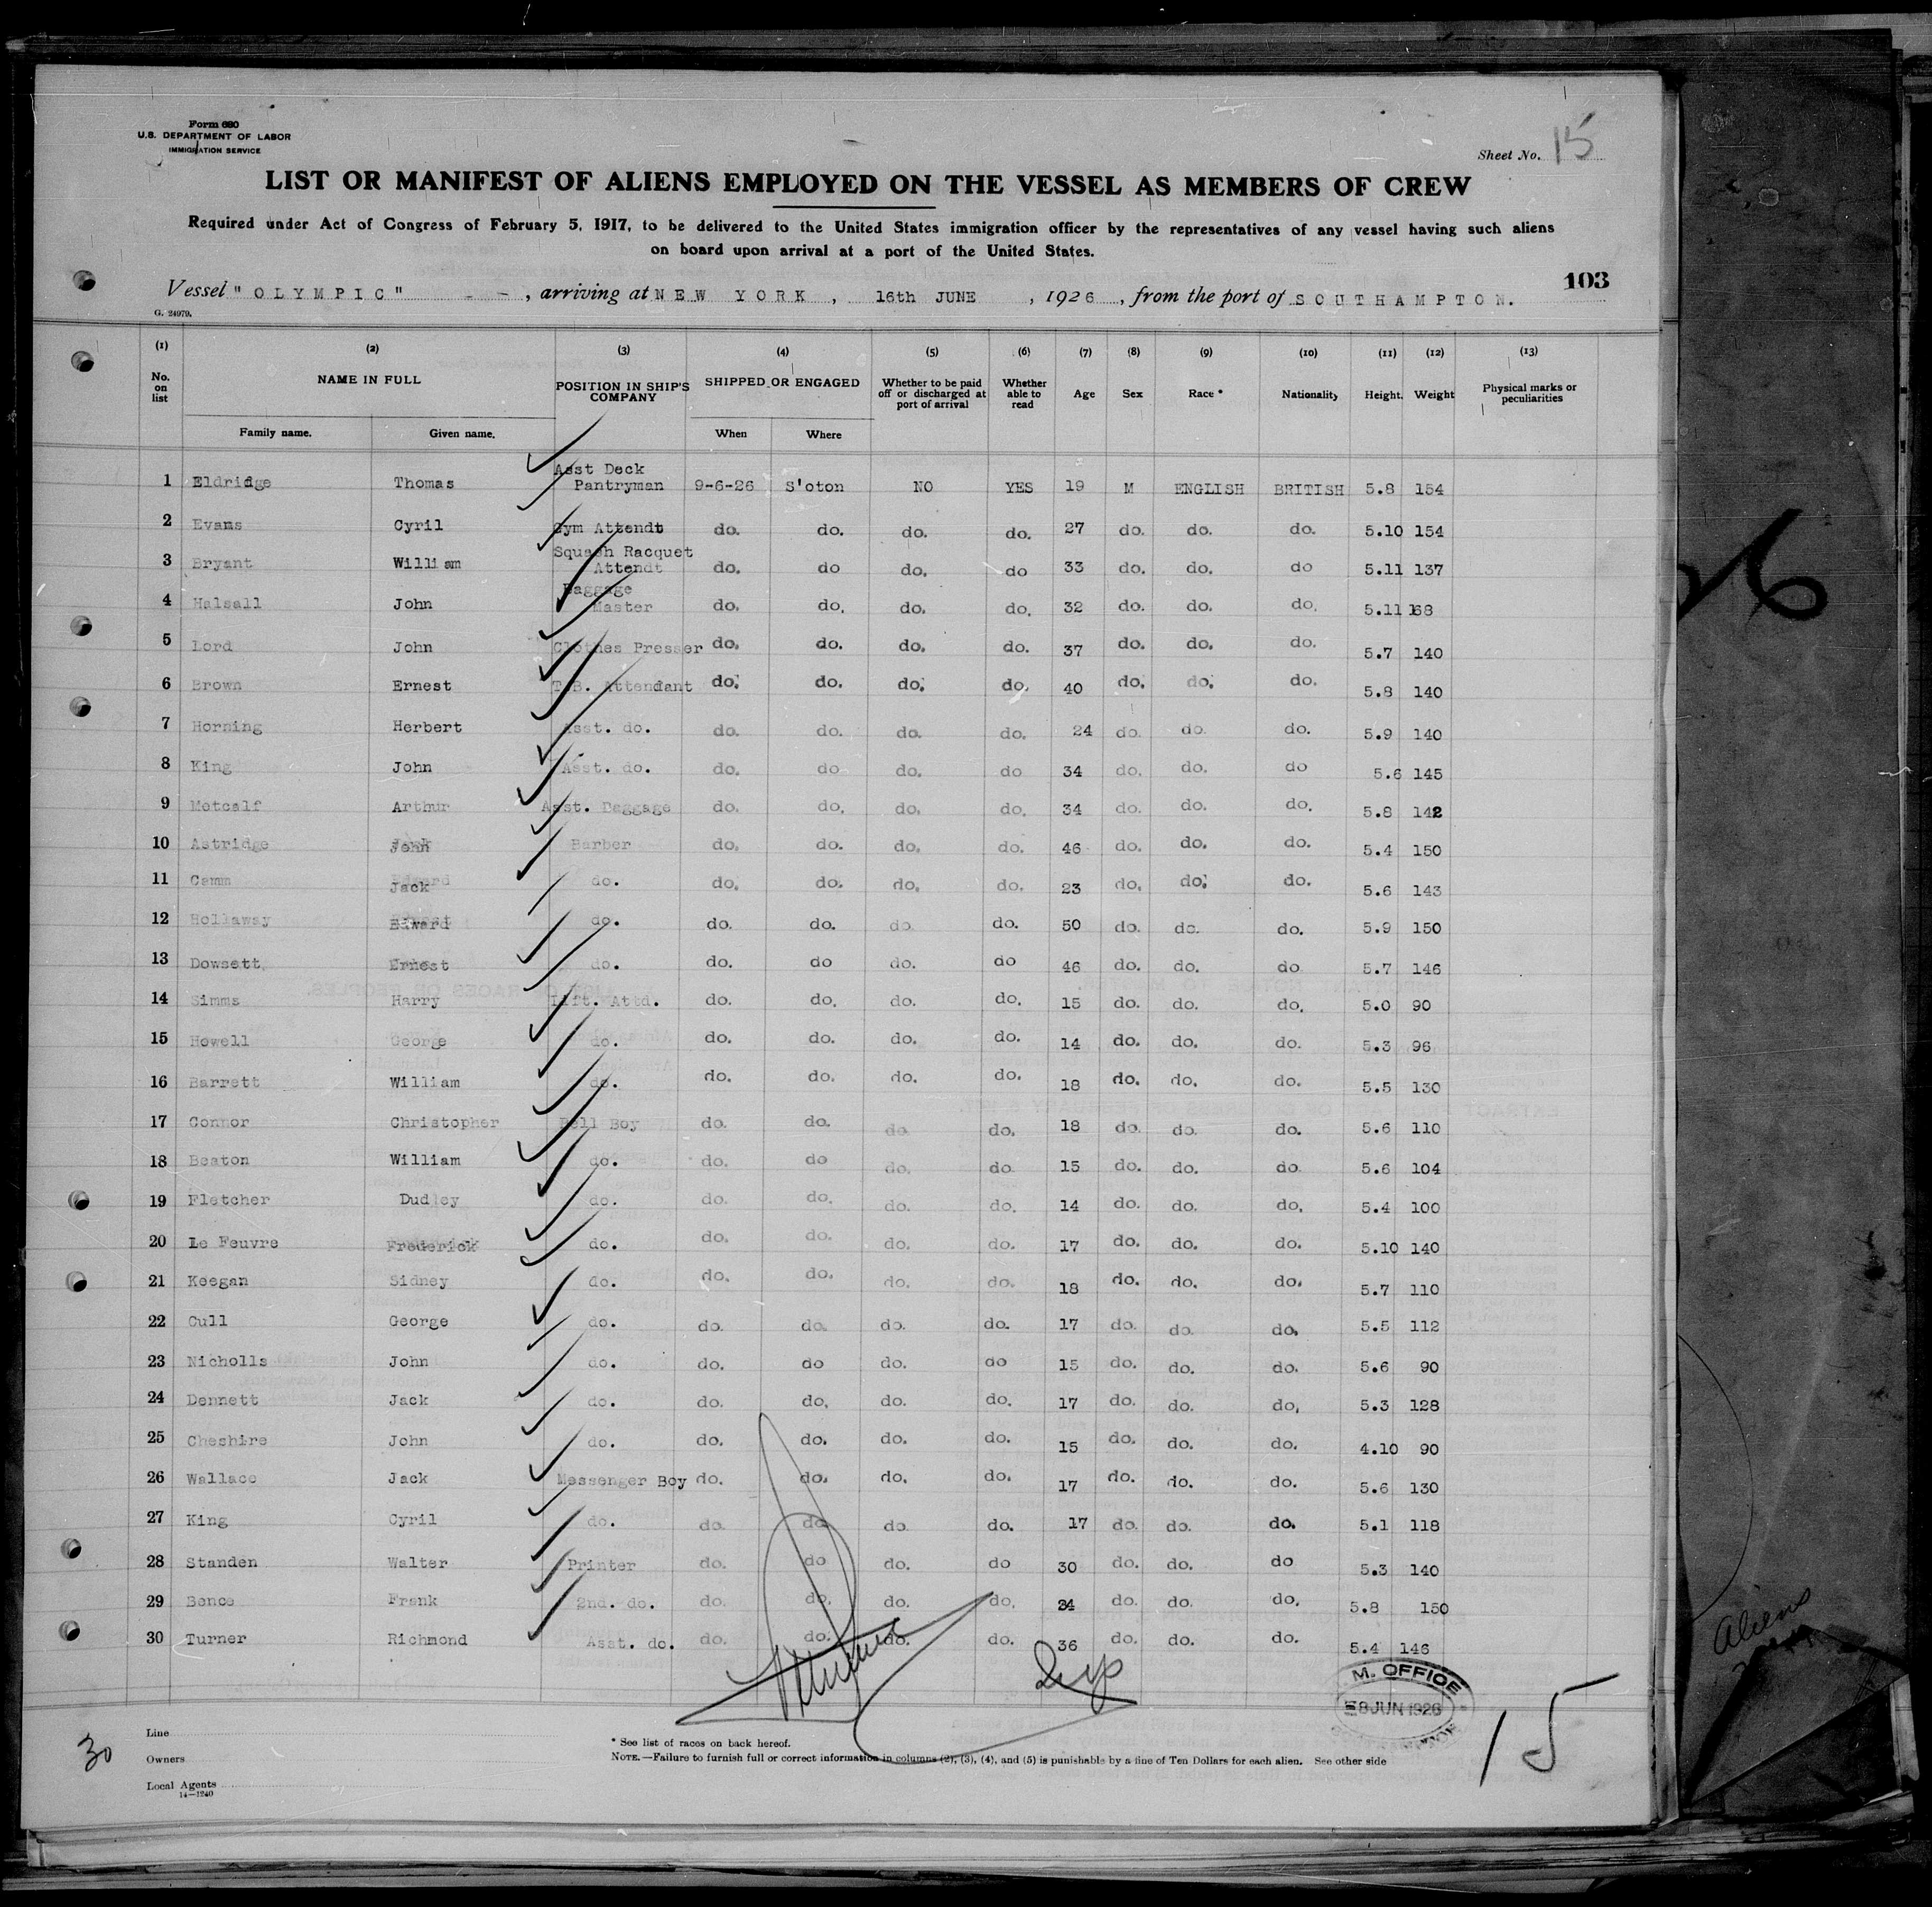 Form 680
U.S. DEPARTMENT OF LABOR
IMMIGRATION SERVICE
Sheet No. 15
LIST OR MANIFEST OF ALIENS EMPLOYED ON THE VESSEL AS MEMBERS OF CREW
Required under Act of Congress of February 5, 1917, to be delivered to the United States immigration officer by the representatives of any vessel having such aliens
on board upon arrival at a port of the United States.
103
Vessel "OLYMPIC" - -, arriving at NEW YORK, 16th JUNE, 1926, from the port of SOUTHAMPTON.
G. 24979.
(1) (2) (3) (4) (5) (6) (7) (8) (9) (10) (11) (12) (13)
No. on list NAME IN FULL POSITION IN SHIP'S COMPANY SHIPPED OR ENGAGED Whether to be paid off or discharged at port of arrival Whether able to read Age Sex Race * Nationality Height. Weight Physical marks or peculiarities
Family name. Given name. When Where
1 Eldridge Thomas Asst Deck Pantryman 9-6-26 S'oton NO YES 19 M ENGLISH BRITISH 5.8 154
2 Evans Cyril Gym Attendt do. do. do. do. 27 do. do. do. 5.10 154
3 Bryant William Squash Racquet Attendt do. do do. do 33 do. do. do 5.11 137
4 Halsall John Baggage Master do. do. do. do. 32 do. do. do. 5.11 168
5 Lord John Clothes Presser do. do. do. do. 37 do. do. do. 5.7 140
6 Brown Ernest T.B. Attendant do. do. do. do. 40 do. do. do. 5.8 140
7 Horning Herbert Asst. do. do. do. do. do. 24 do. do. do. 5.9 140
8 King John Asst. do. do. do do. do 34 do. do. do 5.6 145
9 Metcalf Arthur Asst. Baggage do. do. do. do. 34 do. do. do. 5.8 142
10 Astridge John Barber do. do. do. do. 46 do. do. do. 5.4 150
11 Camm Jack do. do. do. do. do. 23 do. do. do. 5.6 143
12 Hollaway Edward do. do. do. do. do. 50 do. do. do. 5.9 150
13 Dowsett Ernest do. do. do do. do 46 do. do. do 5.7 146
14 Simms Harry Lift. Attd. do. do. do. do. 15 do. do. do. 5.0 90
15 Howell George do. do. do. do. do. 14 do. do. do. 5.3 96
16 Barrett William do. do. do. do. do. 18 do. do. do. 5.5 130
17 Connor Christopher Bell Boy do. do. do. do. 18 do. do. do. 5.6 110
18 Beaton William do. do. do do. do 15 do. do. do 5.6 104
19 Fletcher Dudley do. do. do. do. do. 14 do. do. do. 5.4 100
20 Le Feuvre Frederick do. do. do. do. do. 17 do. do. do. 5.10 140
21 Keegan Sidney do. do. do. do. do. 18 do. do. do. 5.7 110
22 Cull George do. do. do. do. do. 17 do. do. do. 5.5 112
23 Nicholls John do. do. do do. do 15 do. do. do. 5.6 90
24 Dennett Jack do. do. do. do. do. 17 do. do. do. 5.3 128
25 Cheshire John do. do. do. do. do. 15 do. do. do. 4.10 90
26 Wallace Jack Messenger Boy do. do. do. do. 17 do. do. do. 5.6 130
27 King Cyril do. do. do do do. 17 do. do. do. 5.1 118
28 Standen Walter Printer do. do do. do 30 do. do. do 5.3 140
29 Bence Frank 2nd. do. do. do. do. do. 34 do. do. do. 5.8 150
30 Turner Richmond Asst. do. do. do. do. do. 36 do. do. do. 5.4 146
M. OFFICE
8 JUN 1926
15
30
Line
Owners
Local Agents
14-1240
* See list of races on back hereof.
NOTE.—Failure to furnish full or correct information in columns (2), (3), (4), and (5) is punishable by a fine of Ten Dollars for each alien. See other side
Aliens